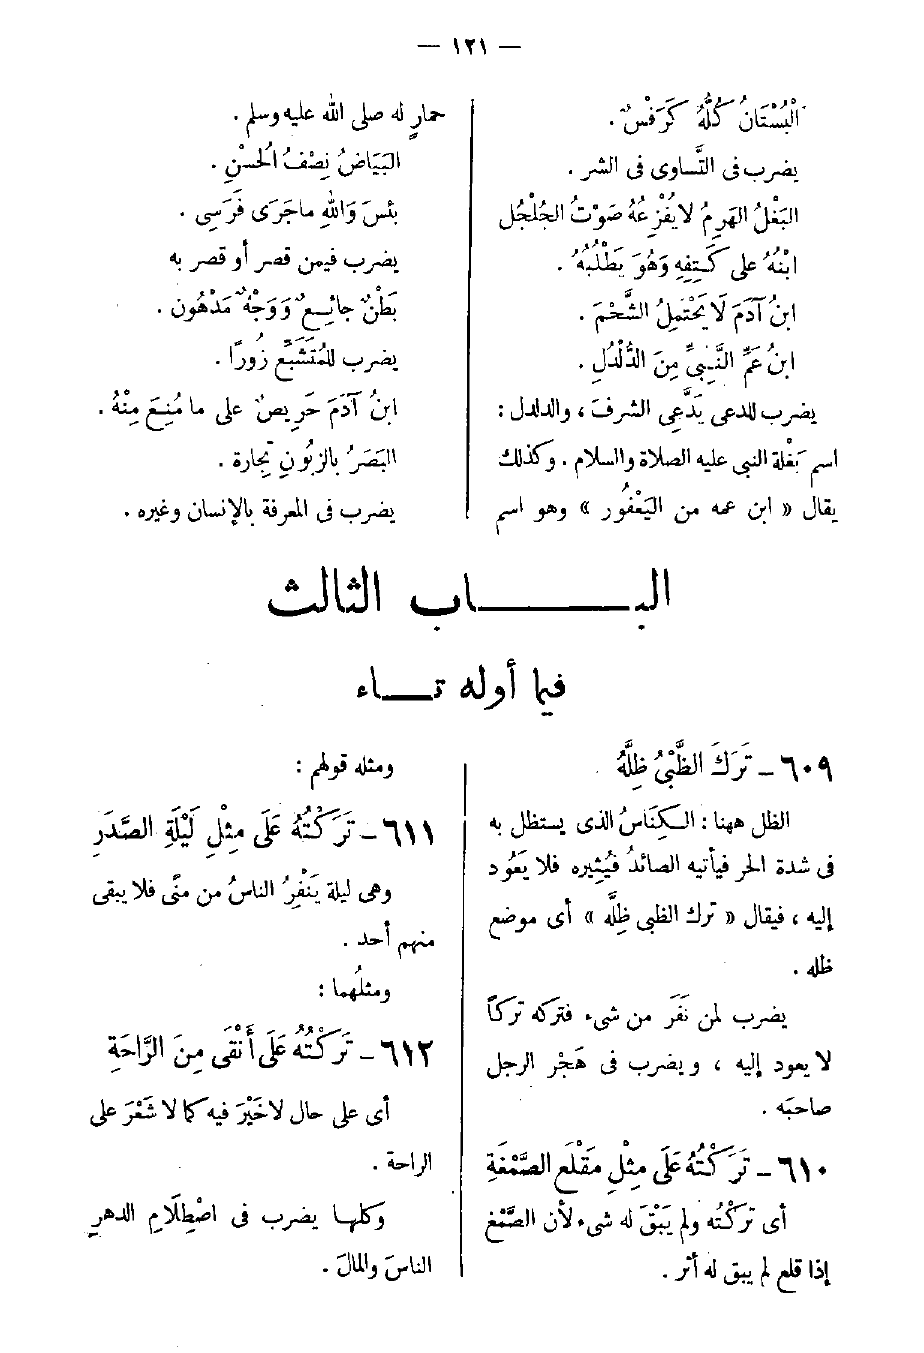 — ١٢١ —
الْبُسْتَانُ كُلُّهُ كَرَفْسٌ .
يضرب فى التَّساوى فى الشر .
البَغْلُ الهَرِمُ لا يُفْزِعُهُ صَوْتُ الجُلْجُلِ
ابْنُهُ على كَتِفِهِ وَهُوَ يَطْلُبُهُ .
ابنُ آدَمَ لَا يَحْتَمِلُ الشَّحْمَ .
ابنُ عَمِّ النَّبِيِّ مِنَ الدُّلْدُلِ .
يضرب للدعى يَدَّعِى الشرفَ ، والدلدل :
اسم بَغْلة النبى عليه الصلاة والسلام . وكذلك
يقال « ابن عمه من اليَعْفُور » وهو اسم
حمارٍ له صلى الله عليه وسلم .
البَيَاضُ نِصْفُ الْحُسْنِ .
بِئْسَ وَاللهِ ماجَرَى فَرَسِى .
يضرب فيمن قصر أو قصر به
بَطْنٌ جائِعٌ وَوَجْهٌ مَدْهُون .
يضرب للمُتَشَبِّعِ زُورًا .
ابنُ آدَمَ حَرِيصٌ على ما مُنِعَ مِنْهُ .
البَصَرُ بالزبُونِ تِجارة .
يضرب فى المعرفة بالإنسان وغيره .
البـاب الثالث
فيما أوله تـاء
٦٠٩ – تَرَكَ الظَّبْيُ ظِلَّهُ
الظل ههنا : الكِنَاسُ الذى يستظل به
فى شدة الحر فيأتيه الصائدُ فيُثِيره فلا يَعُود
إليه ، فيقال « ترك الظبى ظِلَّه » أى موضع
ظله .
يضرب لمن نَفَرَ من شىء فتركه تركاً
لا يعود إليه ، ويضرب فى هَجْرِ الرجل
صاحبَه .
٦١٠ – تَرَكْتُهُ عَلَى مِثْلِ مَقْلَعِ الصَّمْغَةِ
أى تركْتُه ولم يَبْقَ له شىء لأن الصَّمْغ
إذا قلع لم يبق له أثر .
ومثله قولهم :
٦١١ – تَرَكْتُهُ عَلَى مِثْلِ لَيْلَةِ الصَّدَرِ
وهى ليلة يَنْفِرُ الناسُ من منًى فلا يبقى
منهم أحد .
ومثلُهما :
٦١٢ – تَرَكْتُهُ عَلَى أَنْقَى مِنَ الرَّاحَةِ
أى على حال لا خَيْرَ فيه كما لا شَعْرَ على
الراحة .
وكلها يضرب فى اصْطِلَامِ الدهرِ
الناسَ والمالَ .